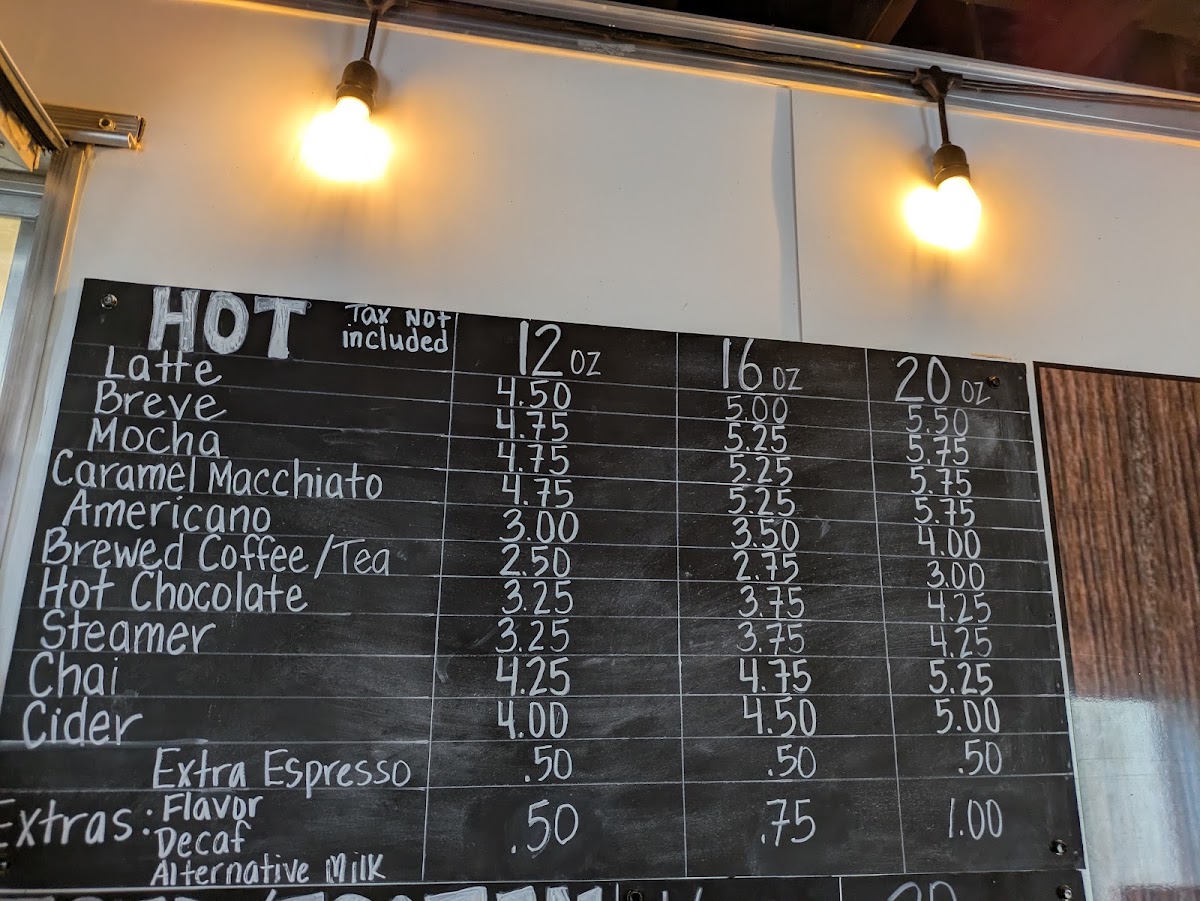 HOT Tax Not included 12 oz 16 oz 20 oz
Latte 4.50 5.00 5.50
Breve 4.75 5.25 5.75
Mocha 4.75 5.25 5.75
Caramel Macchiato 4.75 5.25 5.75
Americano 3.00 3.50 4.00
Brewed Coffee/Tea 2.50 2.75 3.00
Hot Chocolate 3.25 3.75 4.25
Steamer 3.25 3.75 4.25
Chai 4.25 4.75 5.25
Cider 4.00 4.50 5.00
Extra Espresso .50 .50 .50
Extras: Flavor .50 .75 1.00
Decaf
Alternative Milk